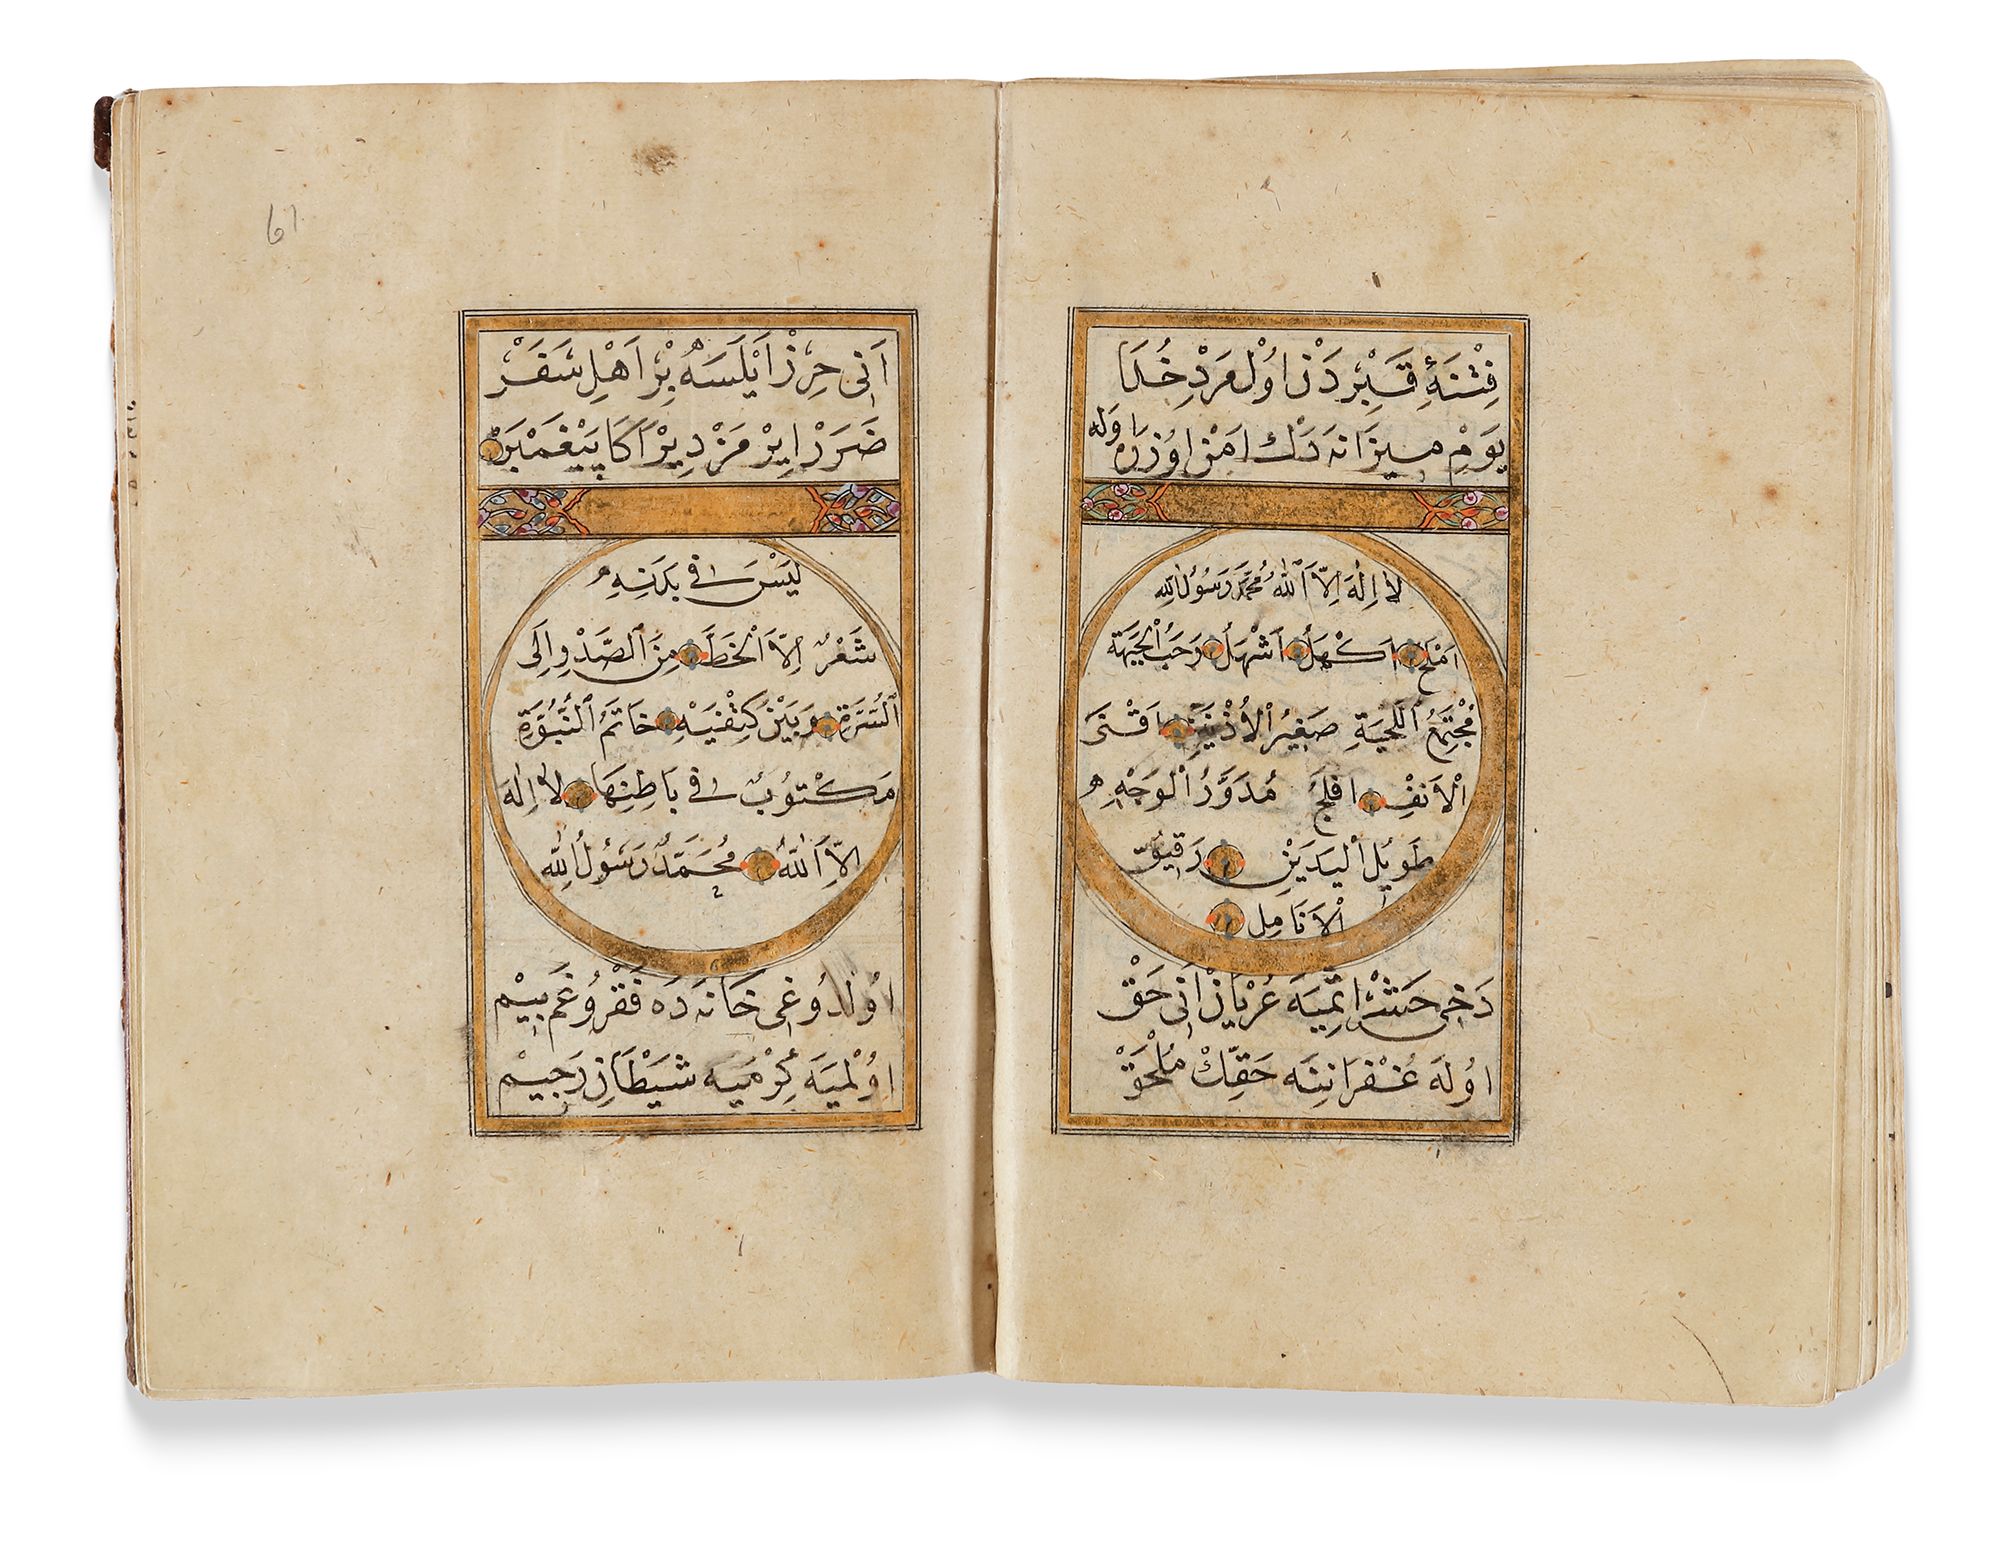 فِتْنَۀِ قَبِرْدَنْ اُولُرْ مَرْدِ خُدَا
يَوْمِ مِيزَانَه دَكْ اَمْنْ اُوزَرَه اوله
لَا اِلٰهَ اِلَّا اَللّٰهُ مُحَمَّدٌ رَسُولُ اللّٰهِ
اَمْلَحُ اَكْهَلُ اَشْهَلُ رَحَبُ الْجَبْهَةِ
مُجْتَمِعُ اللِّحْيَةِ صَغِيرُ الْاُذْنَيْنِ اَقْنَى
الْاَنْفِ اَفْلَجُ مُدَوَّرُ الْوَجْهِ
طَوِيلُ الْيَدَيْنِ رَقِيقُ
الْاَنَامِلِ
دَخِى حَشْرْ اِتْمِيَه عُرْيَانْ اَنِى حَقْ
اُولَه غُفْرَانِنَه حَقِّكْ مُلْحَقْ
٦١
اَنِى حِرْزْ اَيْلَسَه بِرْ اَهْلِ سَفَرْ
ضَرَرْ اِيرْمَزْ دِيرْ اَكَا پَيْغَمْبَرْ
لَيْسَ فِى بَدَنِهِ
شَعْرٌ اِلَّا الْخَطَّ مِنَ الصَّدْرِ اِلَى
السُّرَّةِ وَبَيْنَ كَتِفَيْهِ خَاتَمُ النُّبُوَّةِ
مَكْتُوبٌ فِى بَاطِنِهَا لَا اِلٰهَ
اِلَّا اللّٰهُ مُحَمَّدٌ رَسُولُ اللّٰهِ
اُولْدُوغِى خَانَه دَه فَقْرُ و غَم بِيْم
اُولْمِيَه كِرْمِيَه شَيْطَانِ رَجِيْم